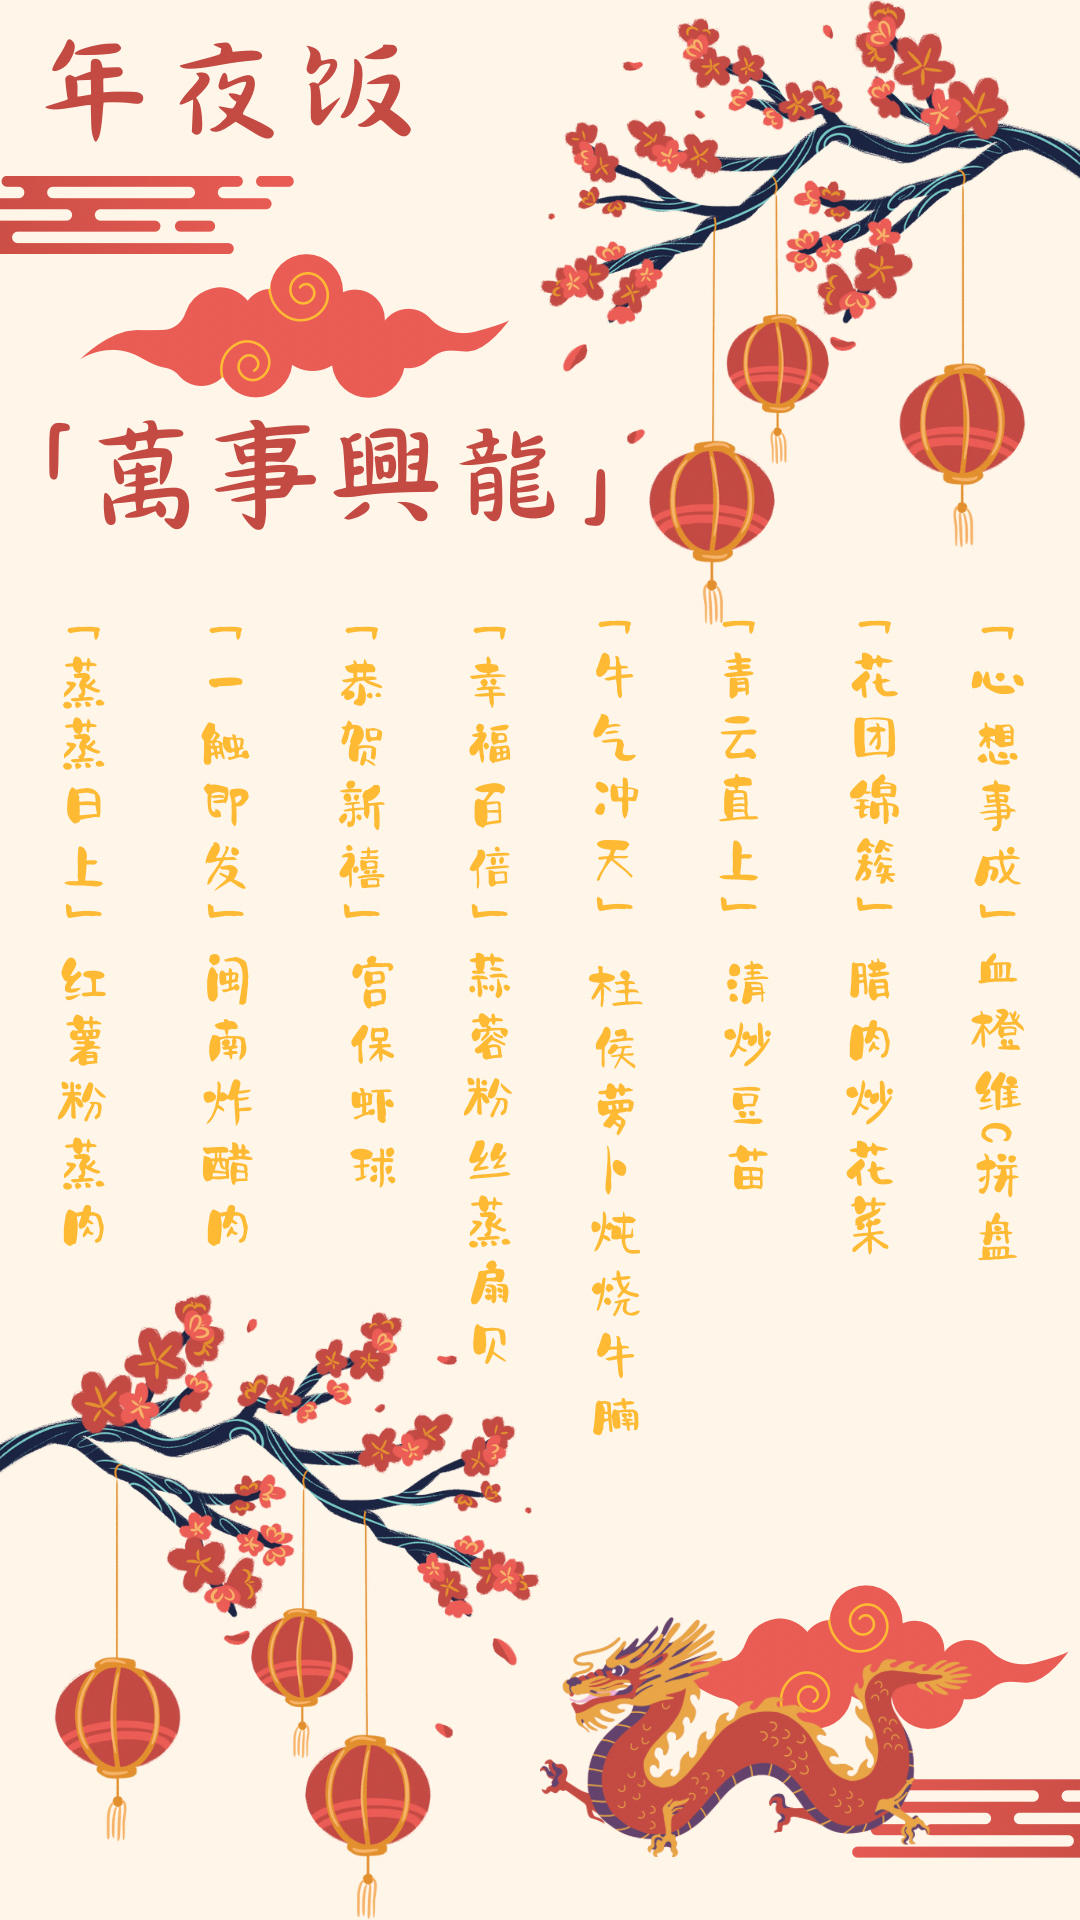 年夜饭
「萬事興龍」
「蒸蒸日上」红薯粉蒸肉
「一触即发」闽南炸醋肉
「恭贺新禧」宫保虾球
「幸福百倍」蒜蓉粉丝蒸扇贝
「牛气冲天」柱侯萝卜炖烧牛腩
「青云直上」清炒豆苗
「花团锦簇」腊肉炒花菜
「心想事成」血橙维C拼盘